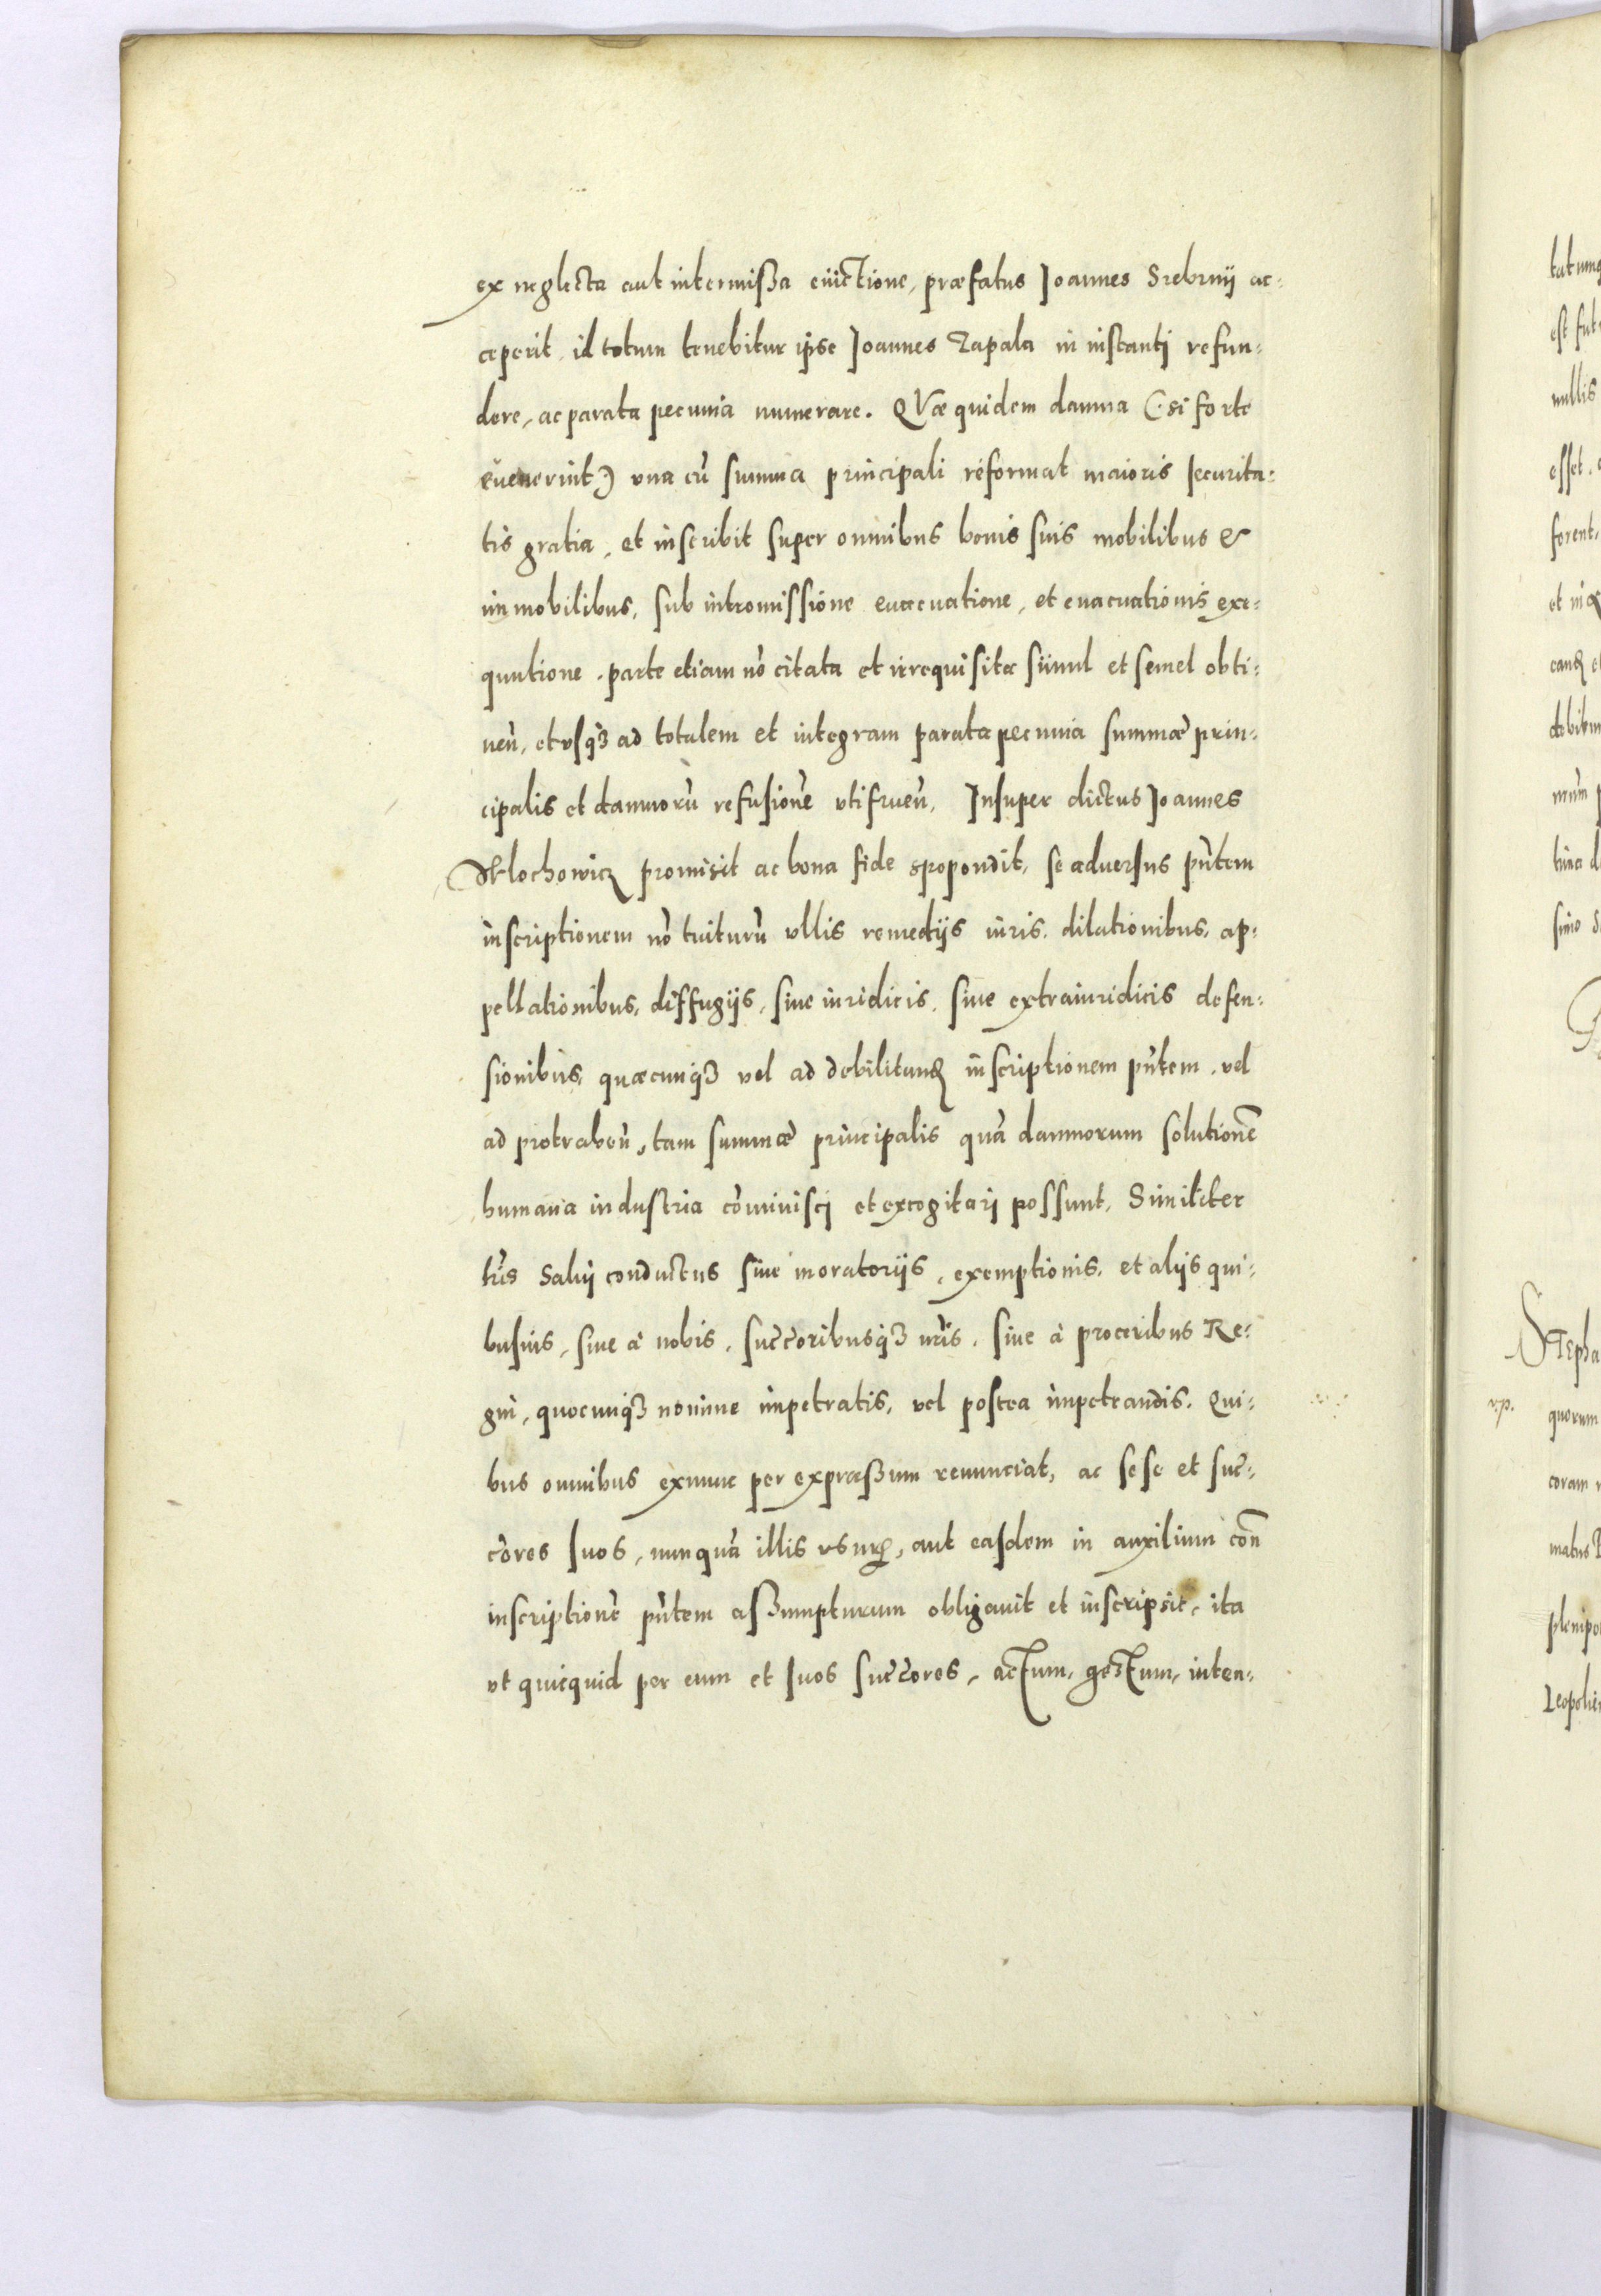 ex neglecta aut intermißa euictione, præfatus Joannes Srebrnij ac-
ceperit, id totum tenebitur ipse Joannes Zapala in instanti refun-
dere, ac parata pecunia numerare. QVæ quidem damna (: si forte
euenerint :) vna cũ summa principali reformat maioris securita-
tis gratia, et inscribit super omnibus bonis suis mobilibus &
immobilibus, sub intromissione euacuatione, et euacuationis exe-
quutione, parte etiam nõ citata et irrequisita simul et semel obti-
neñ, et vsq3 ad totalem et integram parata pecunia summæ prin-
cipalis et damnorũ refusionẽ vtifrueñ, Insuper dictus Joannes
promisit ac bona fide spopondit, se aduersus pñtem
inscriptionem nõ tuiturũ vllis remedijs iuris, dilationibus, ap-
pellationibus, diffugijs, siue iuridicis, siue extraiuridicis defen-
sionibus, quæcunq3 vel ad debilitand inscriptionem pñtem, vel
ad protraheñ, tam summæ principalis quã damnorum solutionẽ
humana industria cõminisci et excogitari possunt, Similiter
lr̃is Salui conductus siue moratorijs, exemptionis, et alijs qui-
busuis, siue à nobis, succõribusq3 nr̃is, siue à proceribus Re-
gni, quocunq3 nomine impetratis, vel postea impetrandis. Qui-
bus omnibus exnunc per expræßum renunciat, ac sese et suc-
cõres suos, nunquã illis vsur, aut easdem in auxilium coñ
inscriptionẽ pñtem aßumpturum obligauit et inscripsit, ita
vt quicquid per eum et suos succõres, actum, gestum, inten-